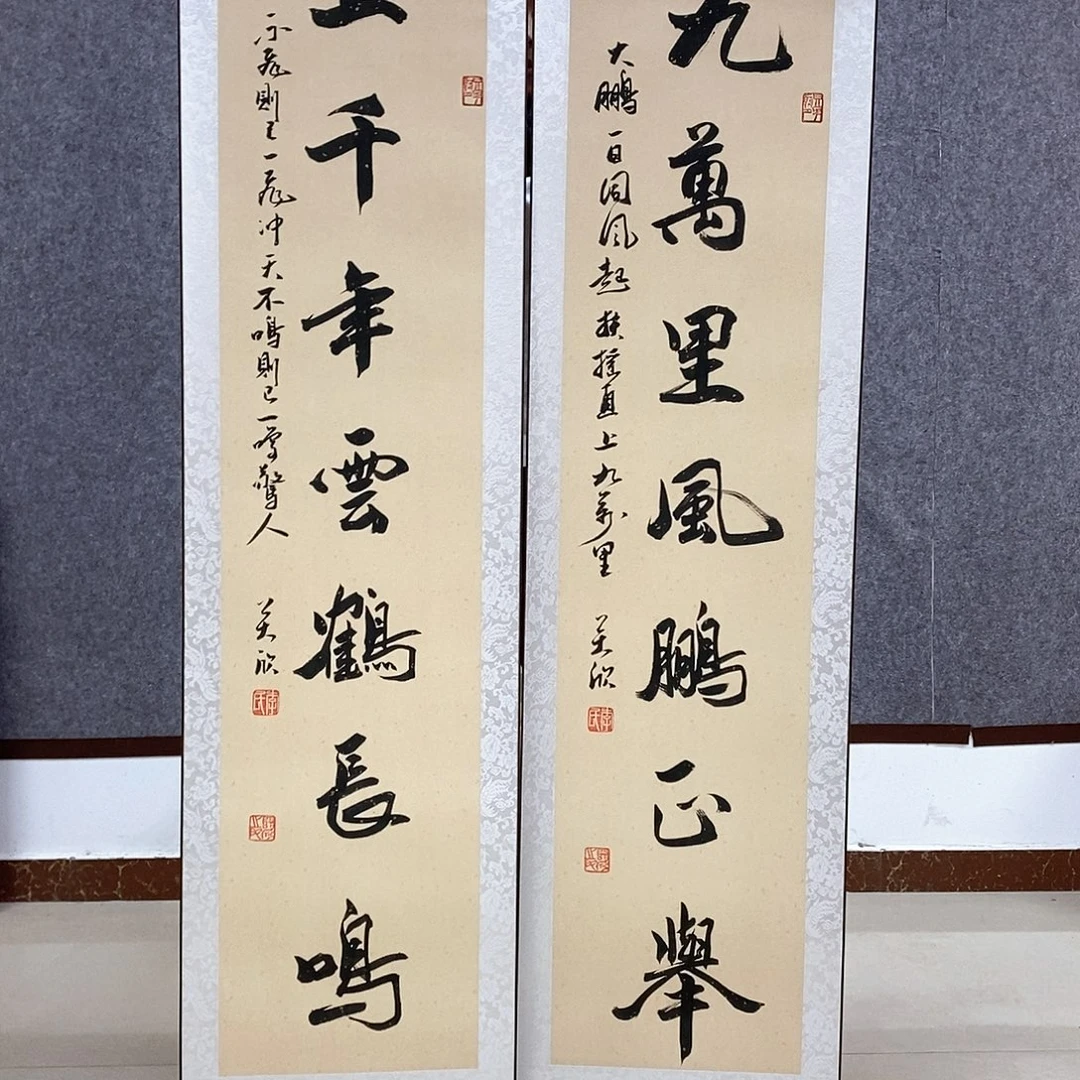 九萬里風鵬正舉
大鵬一日同風起扶搖直上九萬里
美欣
千年雲鶴長鳴
不飛則已一飛冲天不鳴則已一鳴驚人
美欣